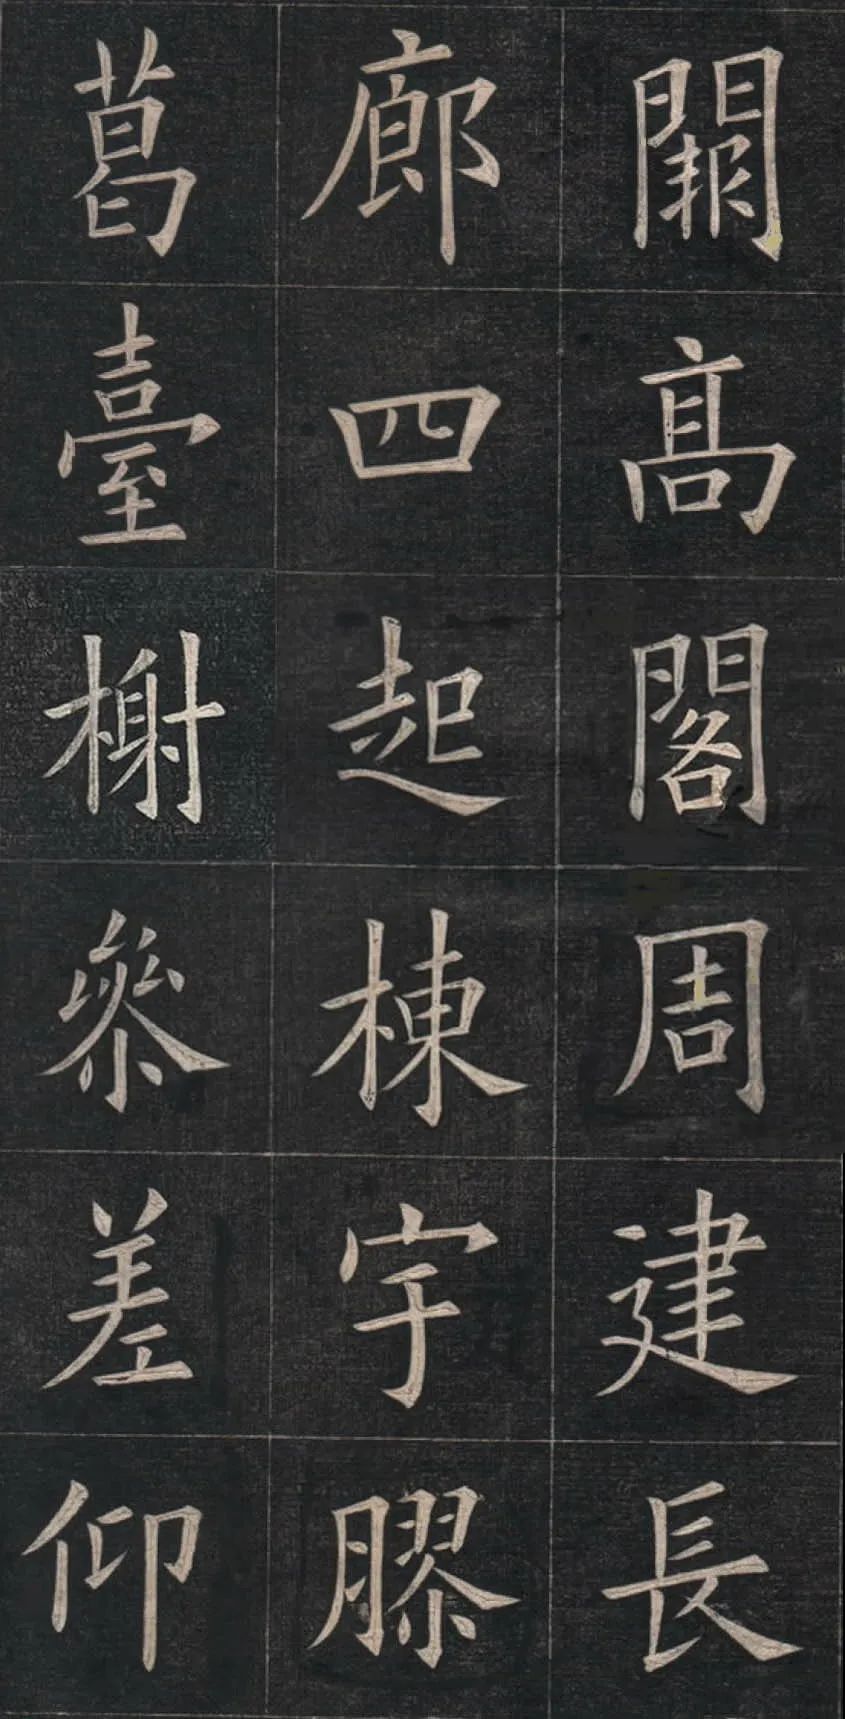 闕高閣周建長
廊四起棟宇膠
葛臺榭參差仰